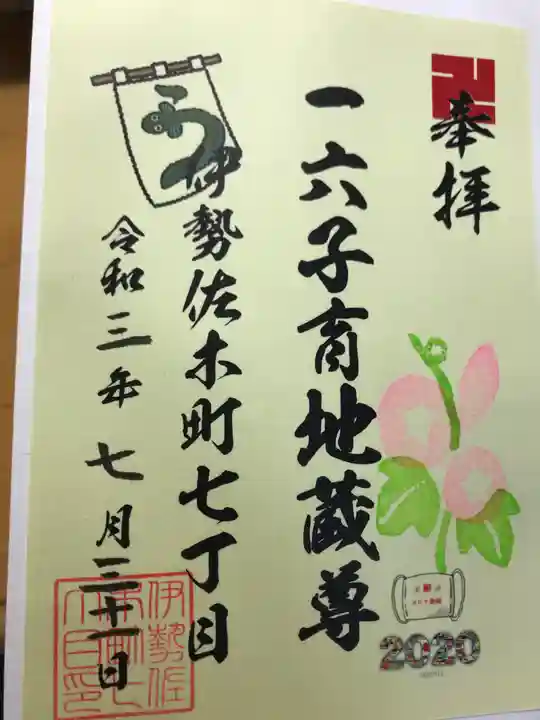 奉拝
一六子育地蔵尊
伊勢佐木町七丁目
う
令和三年七月三十一日
2020